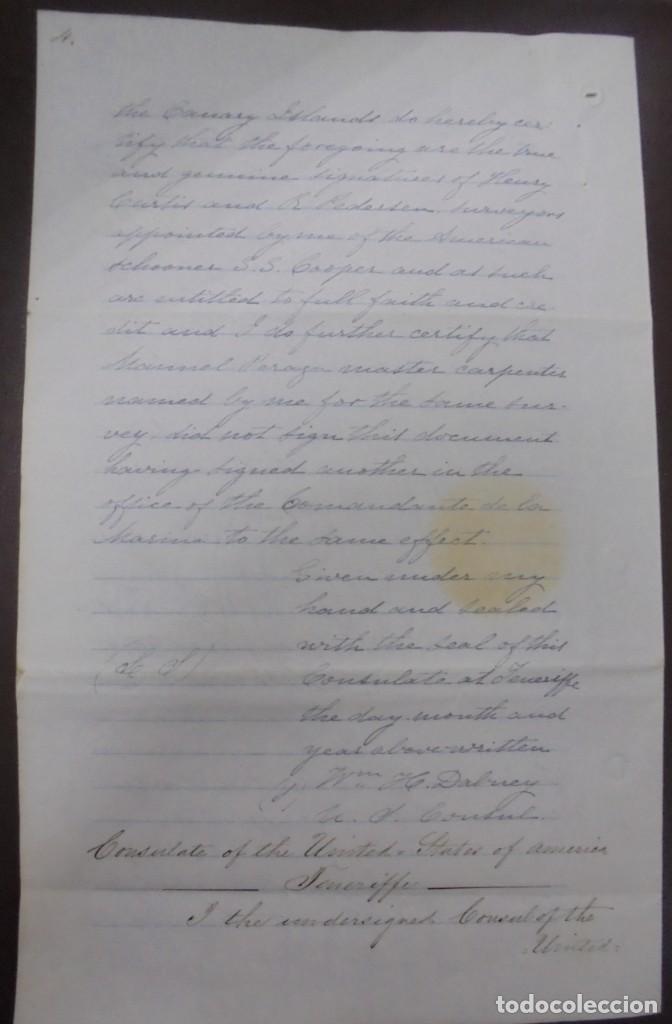 4.
the Canary Islands do hereby cer-
tify that the foregoing are the true
and genuine signatures of Henry
Curtis and R Pedersen, surveyors
appointed by me of the American
schooner S.S. Cooper and as such
are entitled to full faith and cre-
dit and I do further certify that
Manuel Peraza master carpenter
named by me for the same sur-
vey, did not sign this document
having signed another in the
office of the Comandante de la
Marina to the same effect.
Given under my
hand and sealed
with the seal of this
(L S)
Consulate at Teneriffe
the day month and
year above written
Wm. H. Dabney
U. S. Consul.
Consulate of the United States of America
Teneriffe
I the undersigned Consul of the
United-
todocoleccion